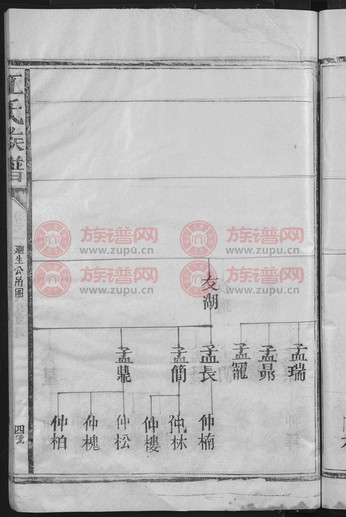 江氏族譜
四號
友湖
孟瑞
孟鼎
孟寵
孟長
孟簡
孟鼎
仲楠
仲林
仲樓
仲松
仲槐
仲柏
族谱网
www.zupu.cn
族谱网
www.zupu.cn
族谱网
www.zupu.cn
族谱网
www.zupu.cn